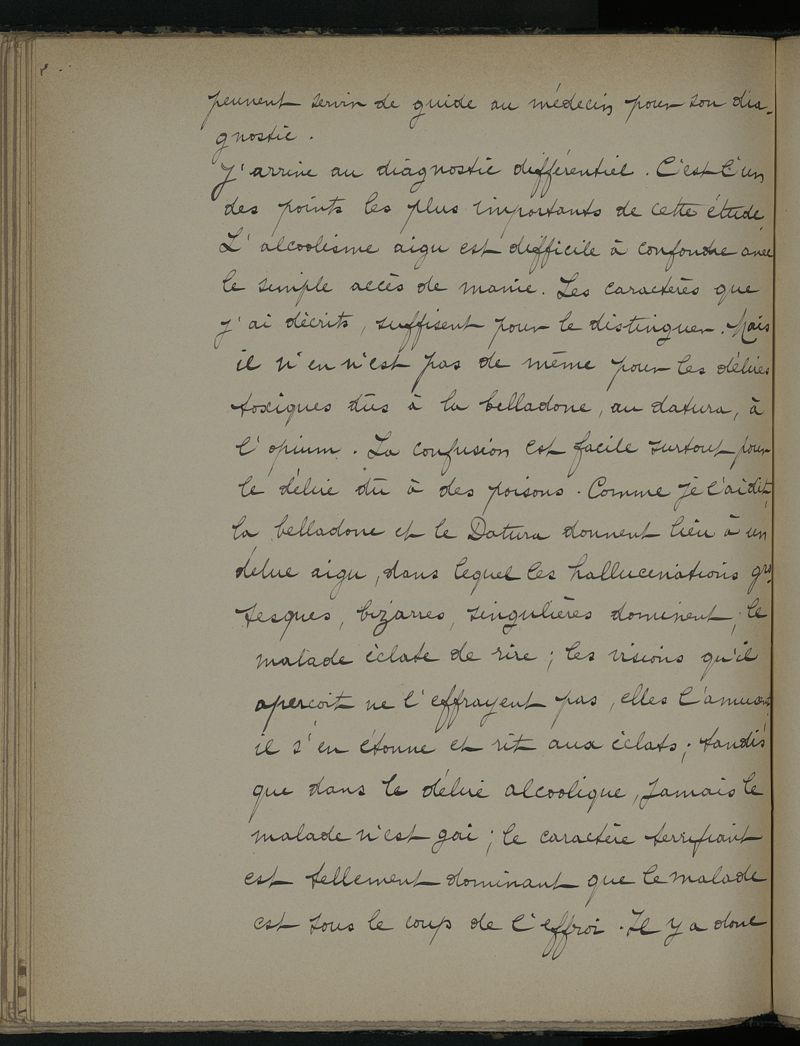 peuvent servir de guide au médecin pour son dia-
gnostic.
J'arrive au diagnostic différentiel. C'est l'un
des points les plus importants de cette étude.
L'alcoolisme aigu est difficile à confondre avec
le simple accès de manie. Les caractères que
j'ai décrits, suffisent pour le distinguer. Mais
il n'en n'est pas de même pour les délires
toxiques dûs à la belladone, au datura, à
l'opium. La confusion est facile surtout pour
le délire dû à des poisons. Comme je l'ai dit,
la belladone et le Datura donnent lieu à un
délire aigu, dans lequel les hallucinations gro-
tesques, bizarres, singulières dominent; le
malade éclate de rire; les visions qu'il
aperçoit ne l'effrayent pas, elles l'amusent,
il s'en étonne et rit aux éclats; tandis
que dans le délire alcoolique, jamais le
malade n'est gai; le caractère terrifiant
est tellement dominant que le malade
est sous le coup de l'effroi. Il y a donc